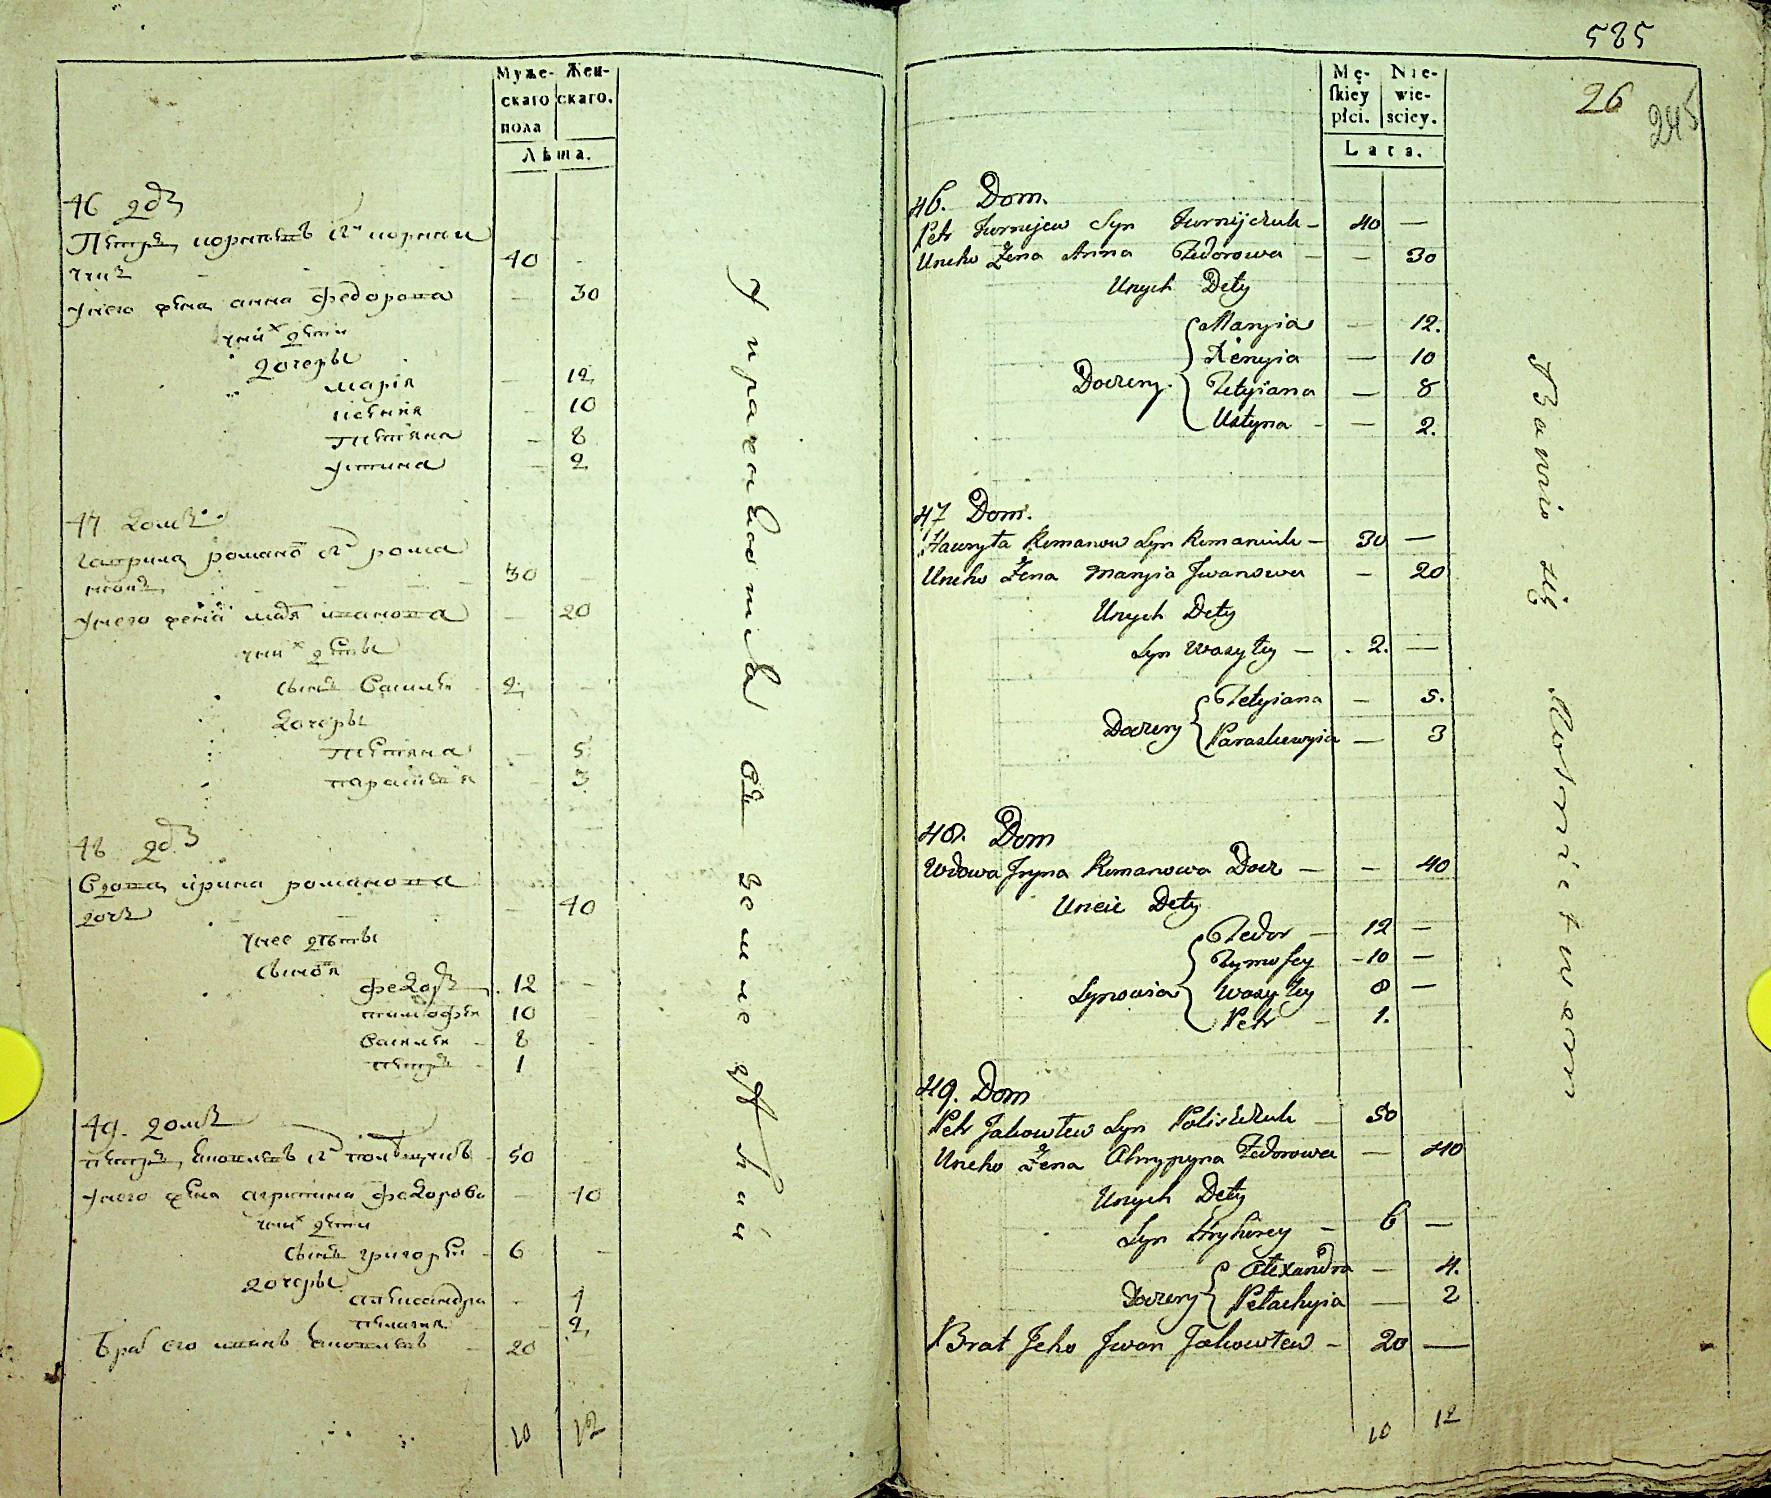 Муже- Жен-
скаго скаго.
пола
Лѣта.
46 дм
Петръ корнѣевъ сн корний
чукъ 40 -
у него жена анна федорова - 30
у них дети
дочеры
мария - 12
ксения - 10
татияна - 8
устина - 2
47 домъ
гаврила романов сн рома
нюкъ 30 -
у него жена мария иванова - 20
у них дети
сынъ василей 2 -
дочеры
татияна - 5
параскевия 3
48 дм
вдова ирина романова
дочъ - 40
у нее дети
сынови
федоръ 12 -
тимофей 10
василей 8 -
петръ 1
49. домъ
петръ яковлевъ сн полещукъ 50
у него жена агрипина федорова - 40
у них дети
сынъ григорей 6 -
дочеры
александра - 4
пелагия - 2
брат его иванъ яковлевъ 20
10 12
упражняются въ земледѣлии
585
26
245
Mę- Nie-
skiey wie-
płci. sciey.
Lata.
46. Dom.
Petr Kornijew Syn Kornijczuk - 40 -
Uneho Żena Anna Fedorowa - - 30
Unych Dety
Maryia - 12.
Xenyia - 10
Doczery. Tetyiana - 8
Ustyna - - 2.
47 Dom.
Hawryła Romanow Syn Romaniuk - 30 -
Uneho Żena Maryia Jwanowa - 20
Unych Dety
Syn Wasyley - 2. -
Tetyiana - 5.
Doczery Paraskewyia - 3
48. Dom
Wdowa Jryna Romanowa Docz - - 40
Uneie Dety
Fedor - 12 -
Tymofey - 10 -
Synowia Wasyley 8 -
Petr - 1.
49. Dom
Petr Jakowlew Syn Poliszczuk - 50
Uneho Żena Ahrypyna Fedorowa - 40
Unych Dety
Syn Hryhorey - 6 -
Alexandra - 4.
Doczery Pełachyia - 2
Brat Jeho Jwan Jakowlew - 20 -
10 12
Bawio się Rolnictwem